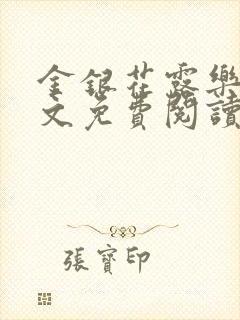 金銀花露樂
文免費閱讀
張寶印